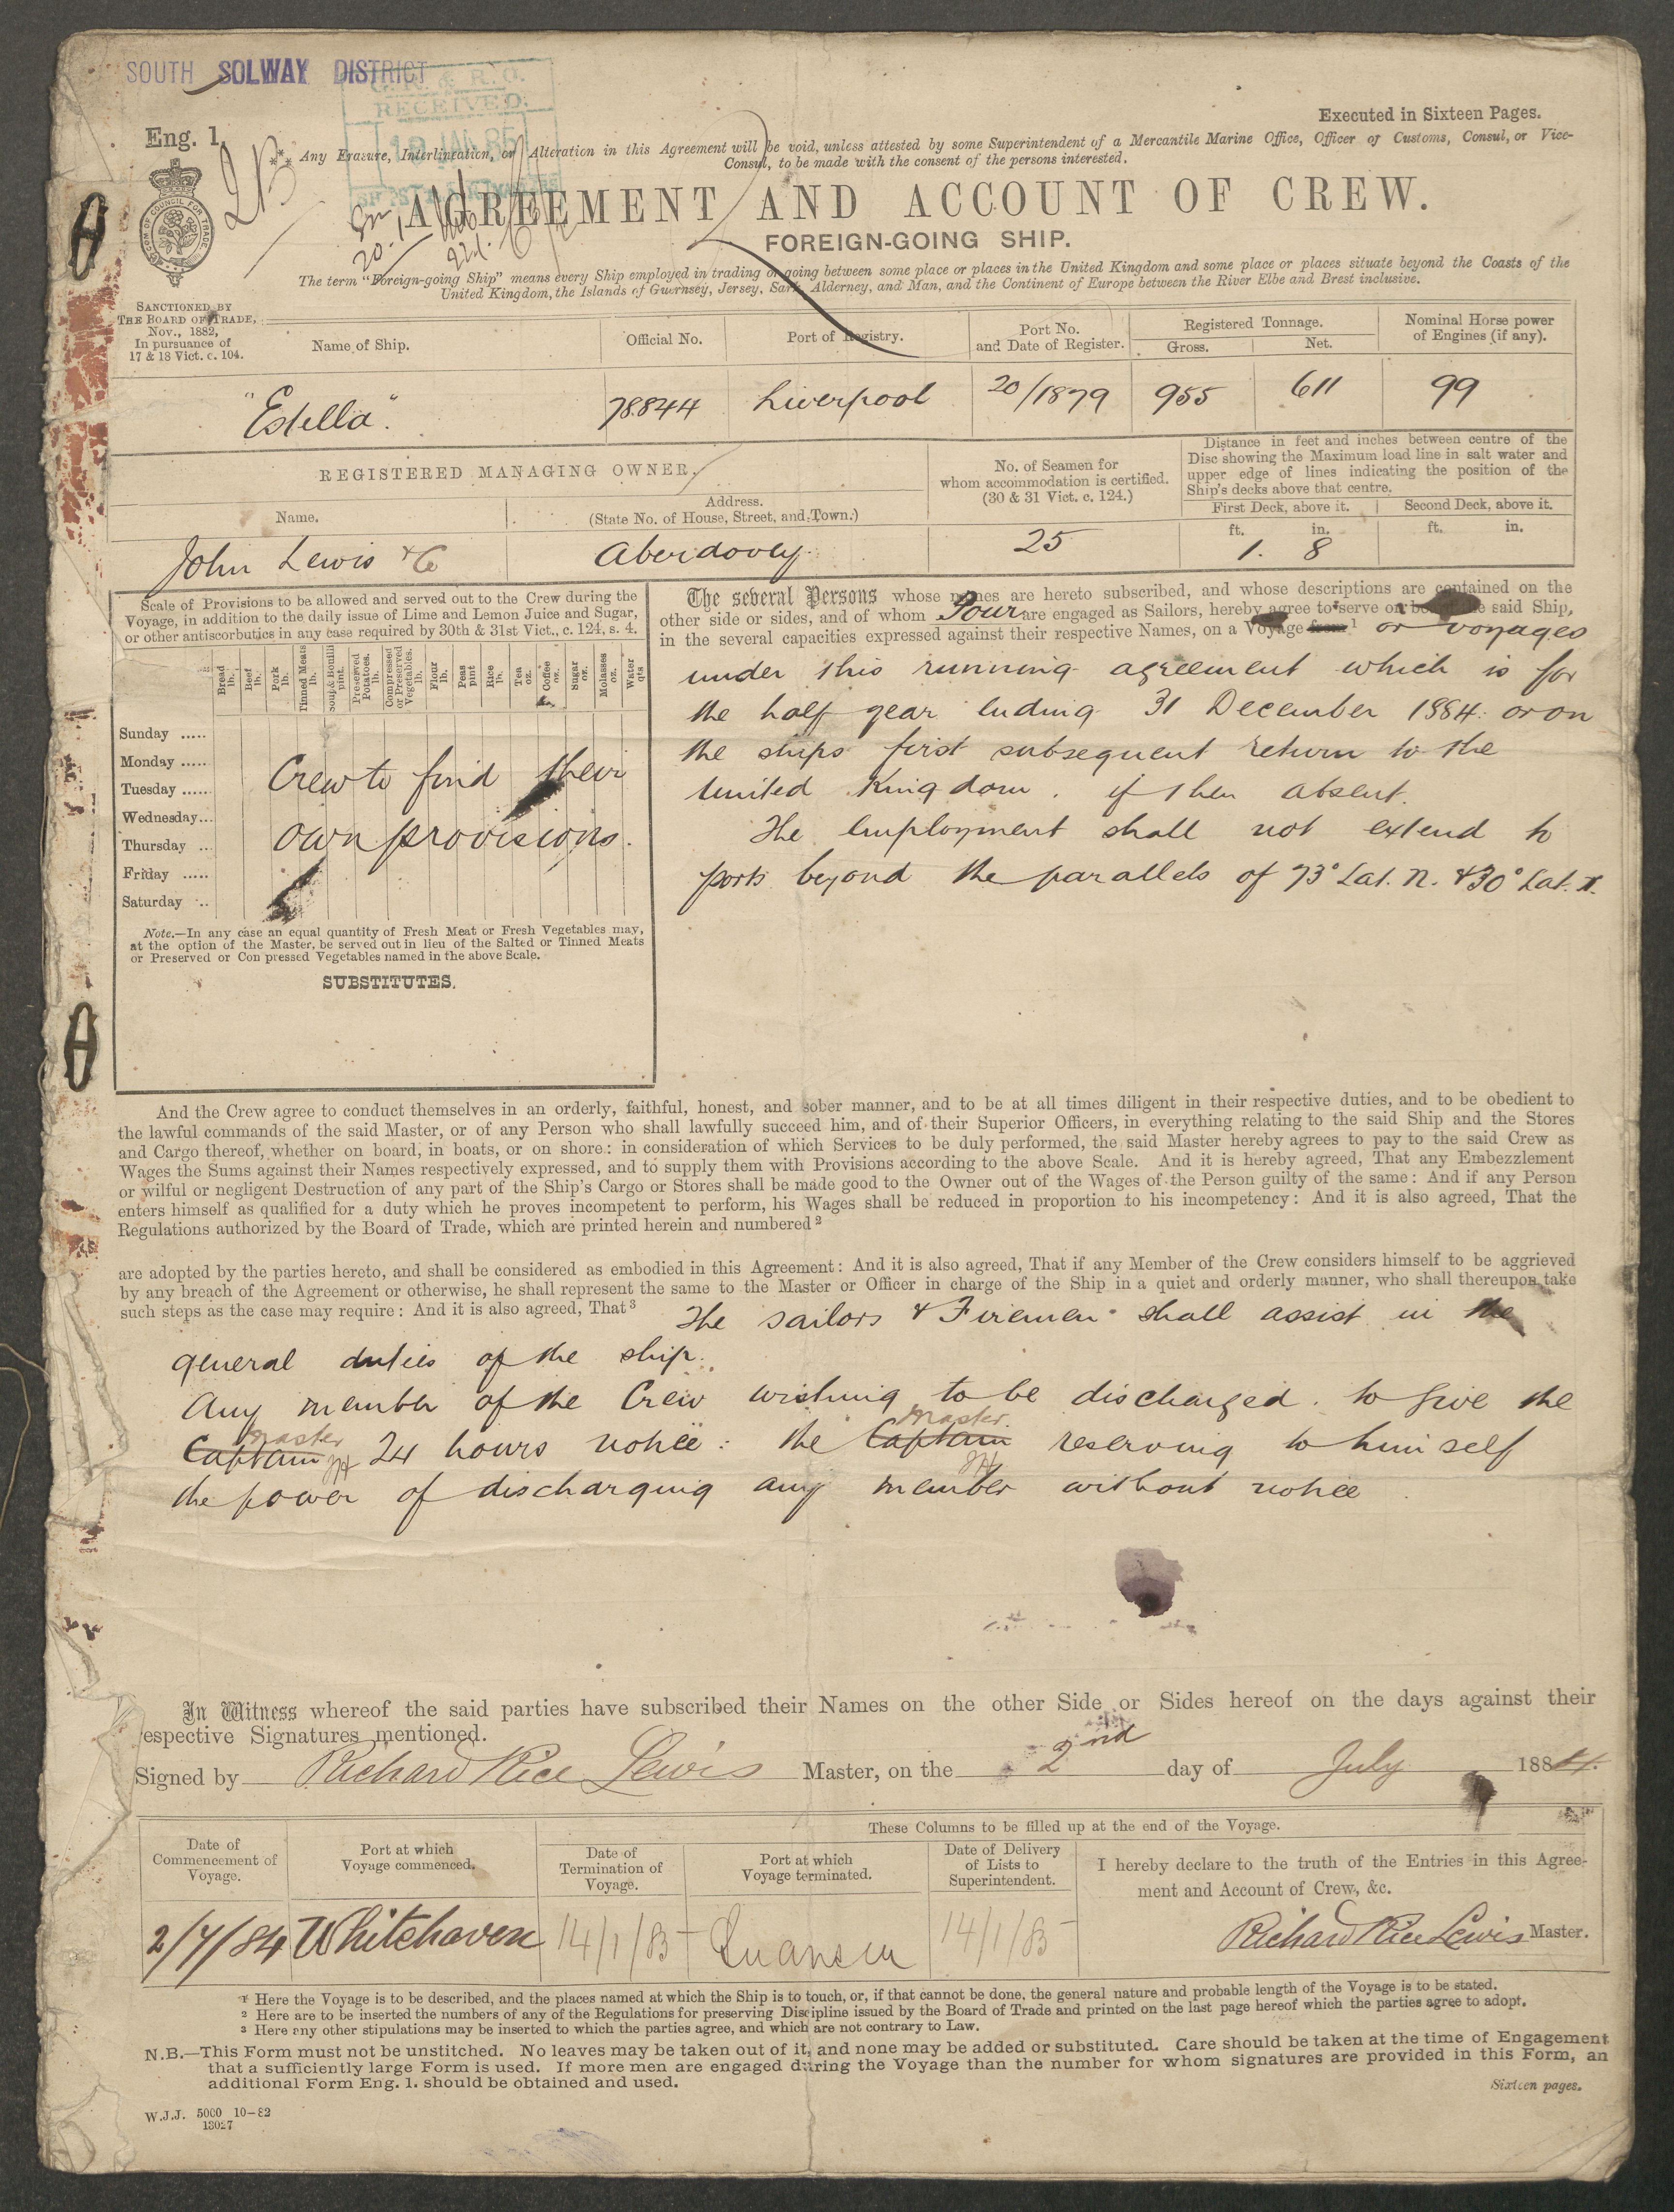 SOUTH SOLWAY DISTRICT
G. R. & R. O.
RECEIVED
19 JAN. 85
Executed in Sixteen Pages.
Eng. 1.
*** Any Erasure, Interlineation, or Alteration in this Agreement will be void, unless attested by some Superintendent of a Mercantile Marine Office, Officer of Customs, Consul, or Vice-
Consul, to be made with the consent of the persons interested.
AGREEMENT AND ACCOUNT OF CREW.
FOREIGN-GOING SHIP.
The term "Foreign-going Ship" means every Ship employed in trading or going between some place or places in the United Kingdom and some place or places situate beyond the Coasts of the
United Kingdom, the Islands of Guernsey, Jersey, Sark, Alderney, and Man, and the Continent of Europe between the River Elbe and Brest inclusive.
SANCTIONED BY
THE BOARD OF TRADE,
Nov., 1882,
In pursuance of
17 & 18 Vict. c. 104.
Name of Ship.
Official No.
Port of Registry.
Port No.
and Date of Register.
Registered Tonnage.
Gross.
Net.
Nominal Horse power
of Engines (if any).
"Estella".
78844
Liverpool
20/1879
955
611
99
REGISTERED MANAGING OWNER.
Name.
Address.
(State No. of House, Street, and Town.)
No. of Seamen for
whom accommodation is certified.
(30 & 31 Vict. c. 124.)
Distance in feet and inches between centre of the
Disc showing the Maximum load line in salt water and
upper edge of lines indicating the position of the
Ship's decks above that centre.
First Deck, above it.
Second Deck, above it.
John Lewis & Co
Aberdovey
25
ft. in.
1. 8
ft. in.
Scale of Provisions to be allowed and served out to the Crew during the
Voyage, in addition to the daily issue of Lime and Lemon Juice and Sugar,
or other antiscorbutics in any case required by 30th & 31st Vict., c. 124, s. 4.
Bread lb.
Beef lb.
Pork lb.
Tinned Meats lb.
Soup & Bouilli pint.
Preserved Potatoes. lb.
Compressed or Preserved Vegetables. lb.
Flour lb.
Peas pint
Rice lb.
Tea oz.
Coffee oz.
Sugar oz.
Molasses oz.
Water qts
Sunday .....
Monday .....
Tuesday ......
Wednesday...
Thursday ...
Friday .....
Saturday ...
Crew to find their
own provisions.
Note.—In any case an equal quantity of Fresh Meat or Fresh Vegetables may,
at the option of the Master, be served out in lieu of the Salted or Tinned Meats
or Preserved or Con pressed Vegetables named in the above Scale.
SUBSTITUTES.
The several Persons whose names are hereto subscribed, and whose descriptions are contained on the
other side or sides, and of whom Four are engaged as Sailors, hereby agree to serve on board the said Ship,
in the several capacities expressed against their respective Names, on a Voyage from¹ or voyages
under this running agreement which is for
the half year ending 31 December 1884 or on
the ships first subsequent return to the
United Kingdom. if then absent.
The employment shall not extend to
ports beyond the parallels of 73° Lat. N. & 30° Lat. N.
And the Crew agree to conduct themselves in an orderly, faithful, honest, and sober manner, and to be at all times diligent in their respective duties, and to be obedient to
the lawful commands of the said Master, or of any Person who shall lawfully succeed him, and of their Superior Officers, in everything relating to the said Ship and the Stores
and Cargo thereof, whether on board, in boats, or on shore: in consideration of which Services to be duly performed, the said Master hereby agrees to pay to the said Crew as
Wages the Sums against their Names respectively expressed, and to supply them with Provisions according to the above Scale. And it is hereby agreed, That any Embezzlement
or wilful or negligent Destruction of any part of the Ship's Cargo or Stores shall be made good to the Owner out of the Wages of the Person guilty of the same: And if any Person
enters himself as qualified for a duty which he proves incompetent to perform, his Wages shall be reduced in proportion to his incompetency: And it is also agreed, That the
Regulations authorized by the Board of Trade, which are printed herein and numbered²
are adopted by the parties hereto, and shall be considered as embodied in this Agreement: And it is also agreed, That if any Member of the Crew considers himself to be aggrieved
by any breach of the Agreement or otherwise, he shall represent the same to the Master or Officer in charge of the Ship in a quiet and orderly manner, who shall thereupon take
such steps as the case may require: And it is also agreed, That³ The sailors & Firemen shall assist in the
general duties of the ship.
Any member of the Crew wishing to be discharged. to give the
master master
Captain 24 hours notice: the Captain reserving to himself
the power of discharging any member without notice.
In Witness whereof the said parties have subscribed their Names on the other Side or Sides hereof on the days against their
espective Signatures mentioned.
Signed by Richard Rice Lewis Master, on the 2nd day of July 1884.
Date of
Commencement of
Voyage.
Port at which
Voyage commenced.
These Columns to be filled up at the end of the Voyage.
Date of
Termination of
Voyage.
Port at which
Voyage terminated.
Date of Delivery
of Lists to
Superintendent.
I hereby declare to the truth of the Entries in this Agree-
ment and Account of Crew, &c.
2/7/84
Whitehaven
14/1/85
Swansea
14/1/85
Richard Rice Lewis Master.
¹ Here the Voyage is to be described, and the places named at which the Ship is to touch, or, if that cannot be done, the general nature and probable length of the Voyage is to be stated.
² Here are to be inserted the numbers of any of the Regulations for preserving Discipline issued by the Board of Trade and printed on the last page hereof which the parties agree to adopt.
³ Here any other stipulations may be inserted to which the parties agree, and which are not contrary to Law.
N.B.—This Form must not be unstitched. No leaves may be taken out of it, and none may be added or substituted. Care should be taken at the time of Engagement
that a sufficiently large Form is used. If more men are engaged during the Voyage than the number for whom signatures are provided in this Form, an
additional Form Eng. 1. should be obtained and used.
Sixteen pages.
W.J.J. 5000 10–82
13027